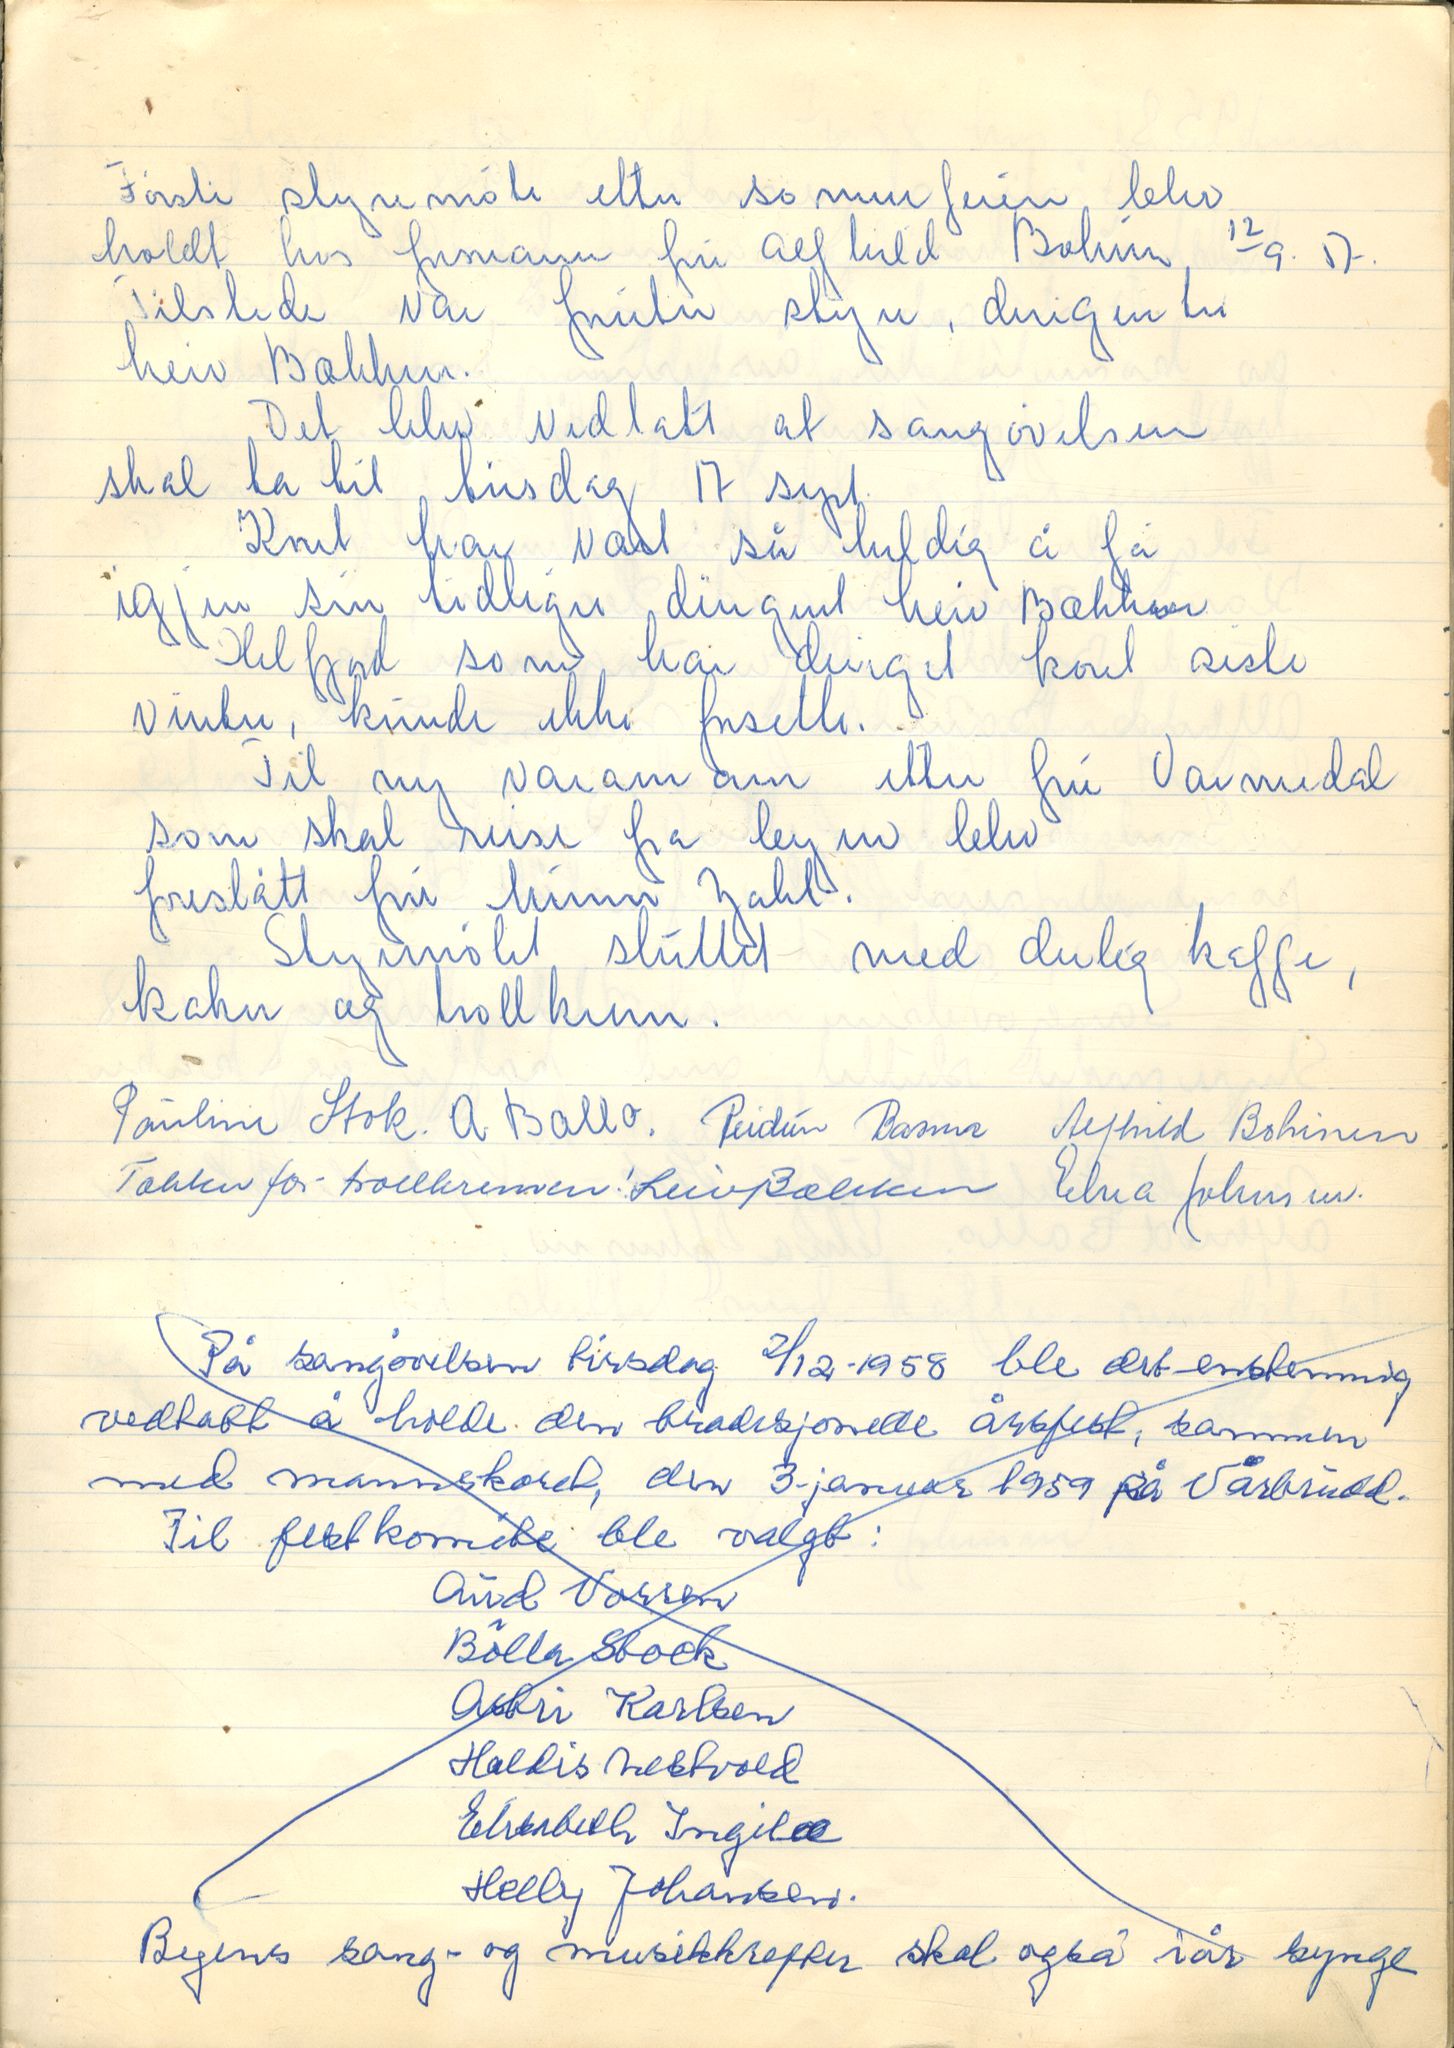 Förste styremöte etter sommerferien blev
holdt hos formann frú Alfhild Bohinen 12/9. 57.
Tilstede var frúter styre, dirigenten
Leiv Bækken.
Det blev vedtatt at sangövelsen
skal ta til tirsdag 17 sept.
Koret har vært så heldig å få
igjen sin tidligere dirigent Leiv Bækken
som har dirigert koret siste
vinter, kúnde ikke fortsette.
Til ny varamann etter frú Varmedal
som skal reise fra byen blev
foreslått frú Zahl.
Styremötet slúttet med deilig kaffe,
kaker og trollkrem.
Paúline Stok. A. Ballo. Reidún Alfhild Bohinen
Takker for trollkremen! Leiv Bækken Edna Johnsen.
På sangøvelsen tirsdag 2/12-1958 ble det enstemmig
vedtatt å holde den tradisjonelle årsfest, sammen
med mannskoret, den 3. januar 1959 på Vårbrudd.
Til festkomite ble valgt:
Aúd Vorren
Bölla Stock
Astri Karlsen
Haldis Nestvold
Elisabeth
Helly Johansen.
Byens sang- og musikkrefter skal også i år synge